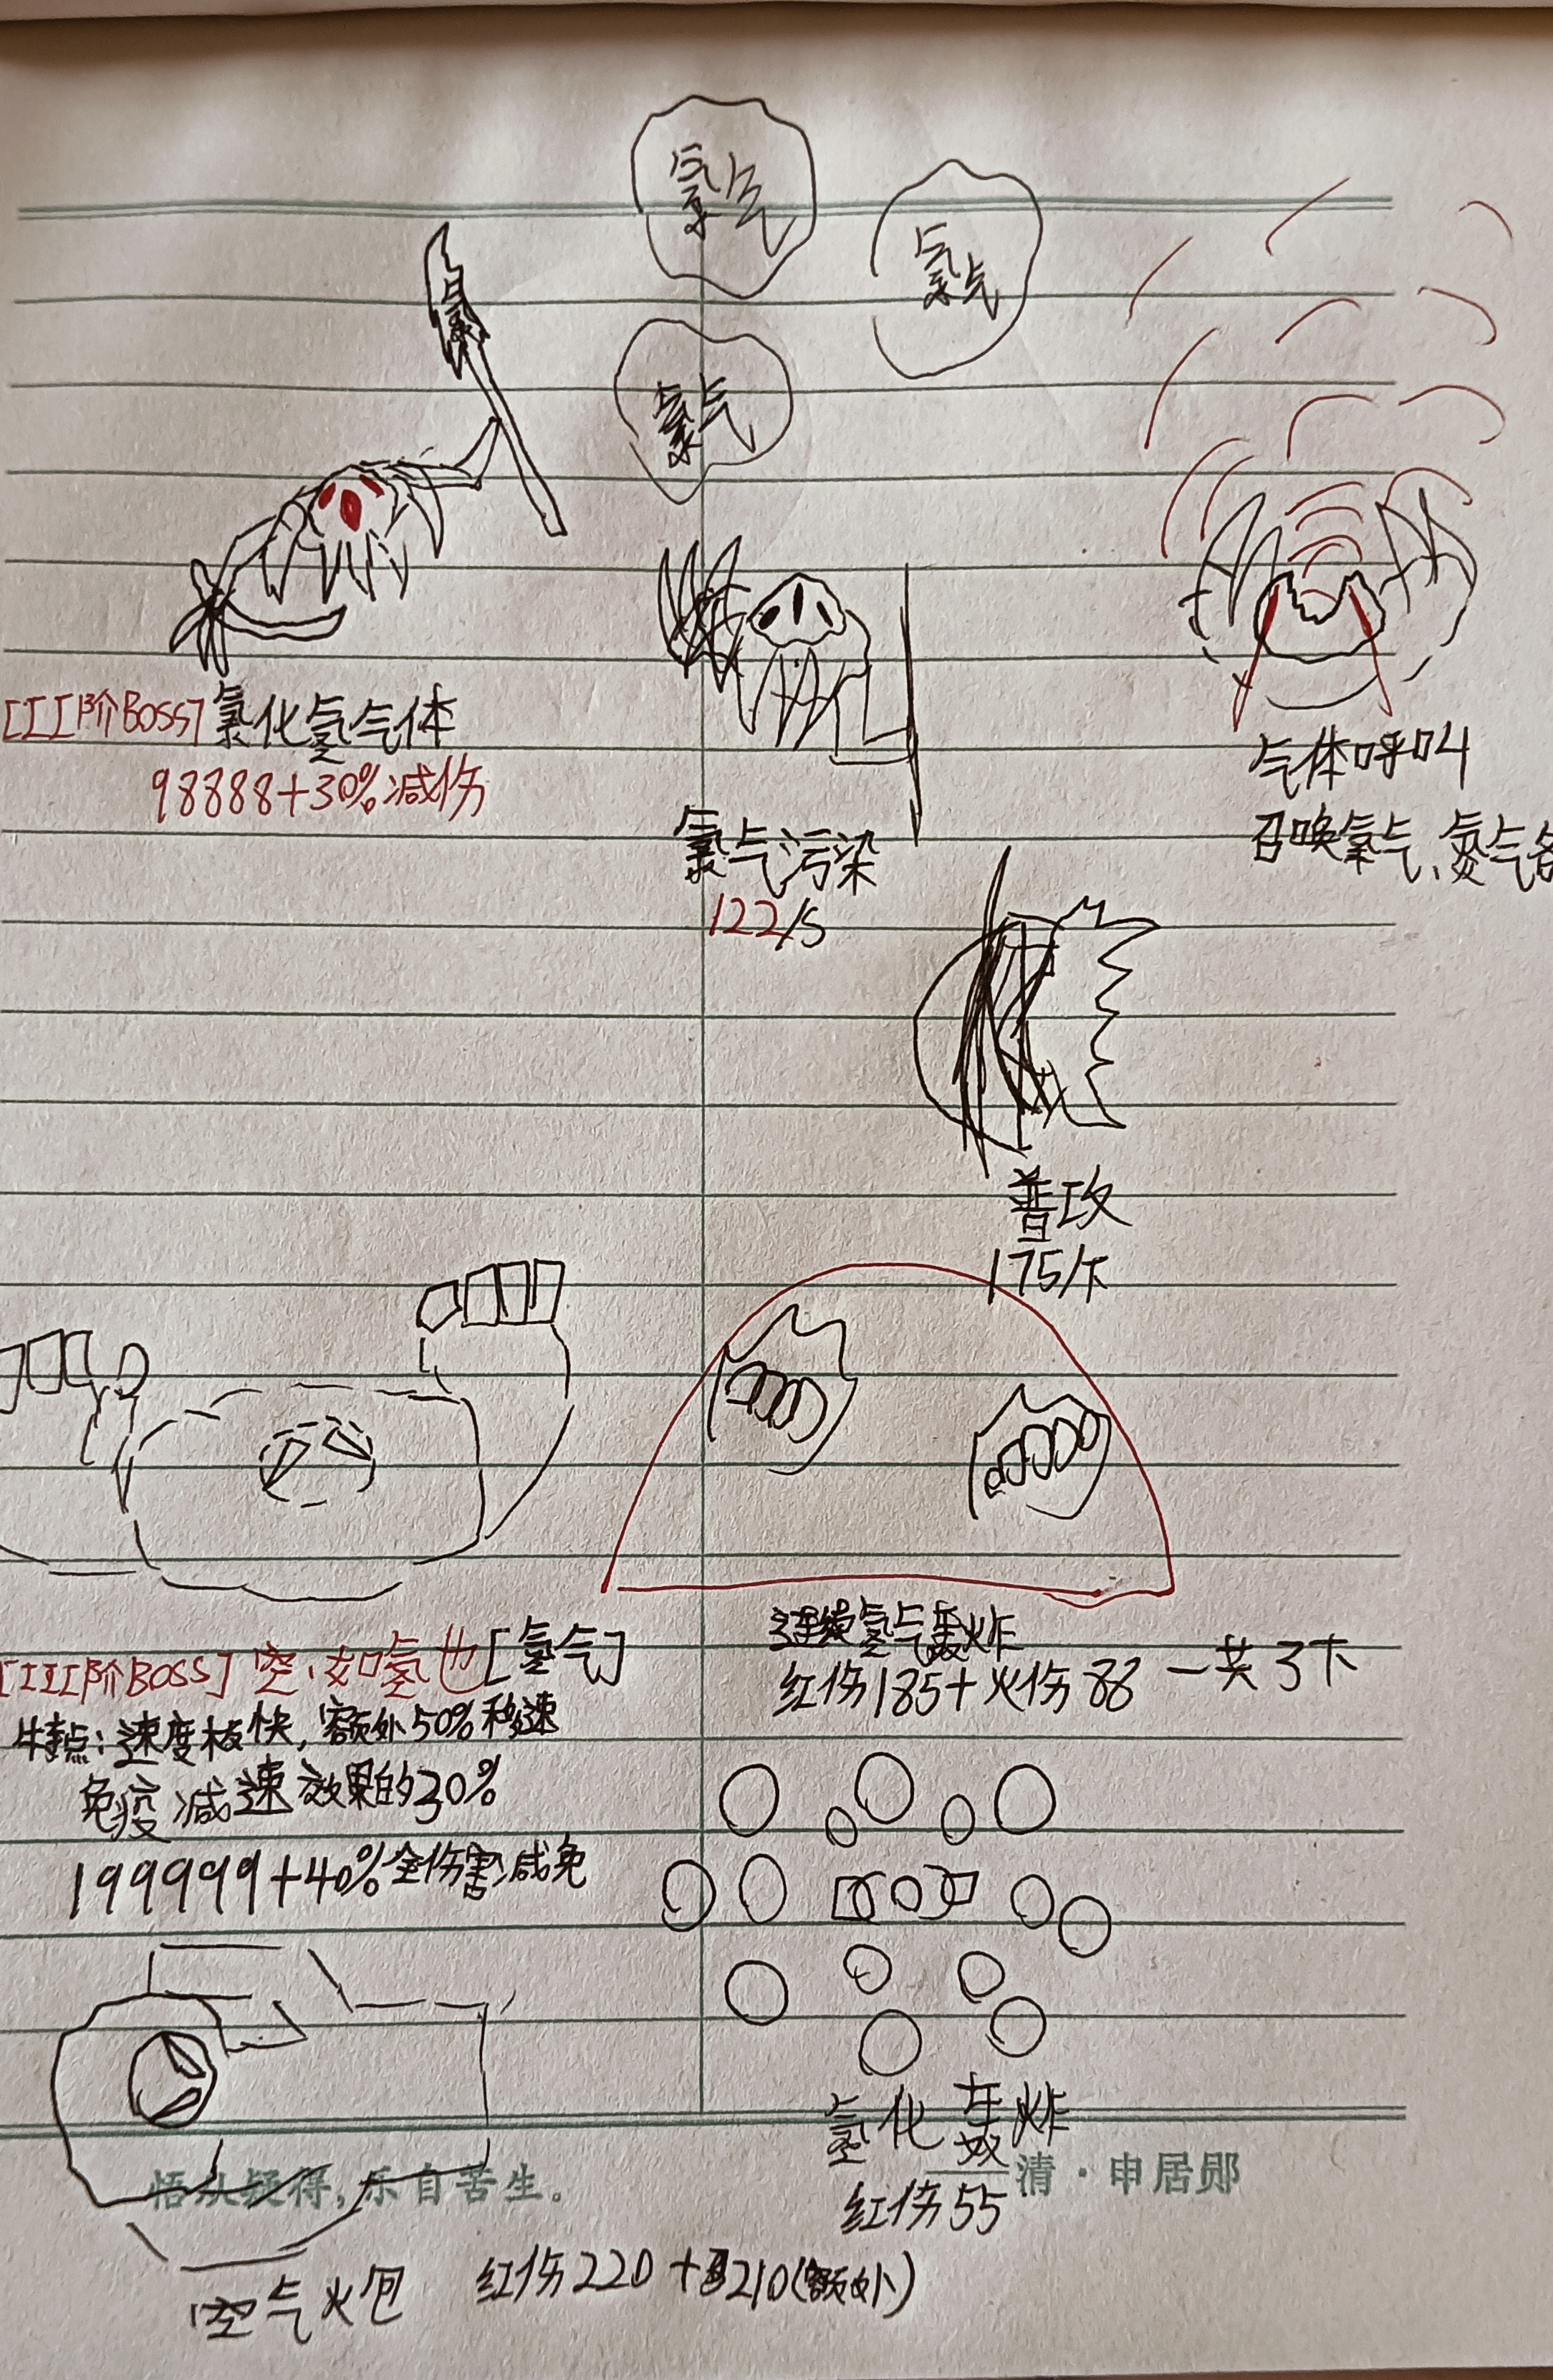 氯气
氯气
氯气
氯
[III阶BOSS]氯化氢气体
98888+30%减伤
氯气污染
122/S
气体呼叫
召唤氧气、氮气各
普攻
175/下
[III阶BOSS]空如氢也[氢气]
特点:速度极快,额外50%移速
免疫减速效果的30%
199999+40%全伤害减免
连续氢气轰炸
红伤185+火伤88 一共3下
氢化轰炸
红伤55
悟从疑得,乐自苦生。
清·申居郧
空气火包
红伤220+210(额外)